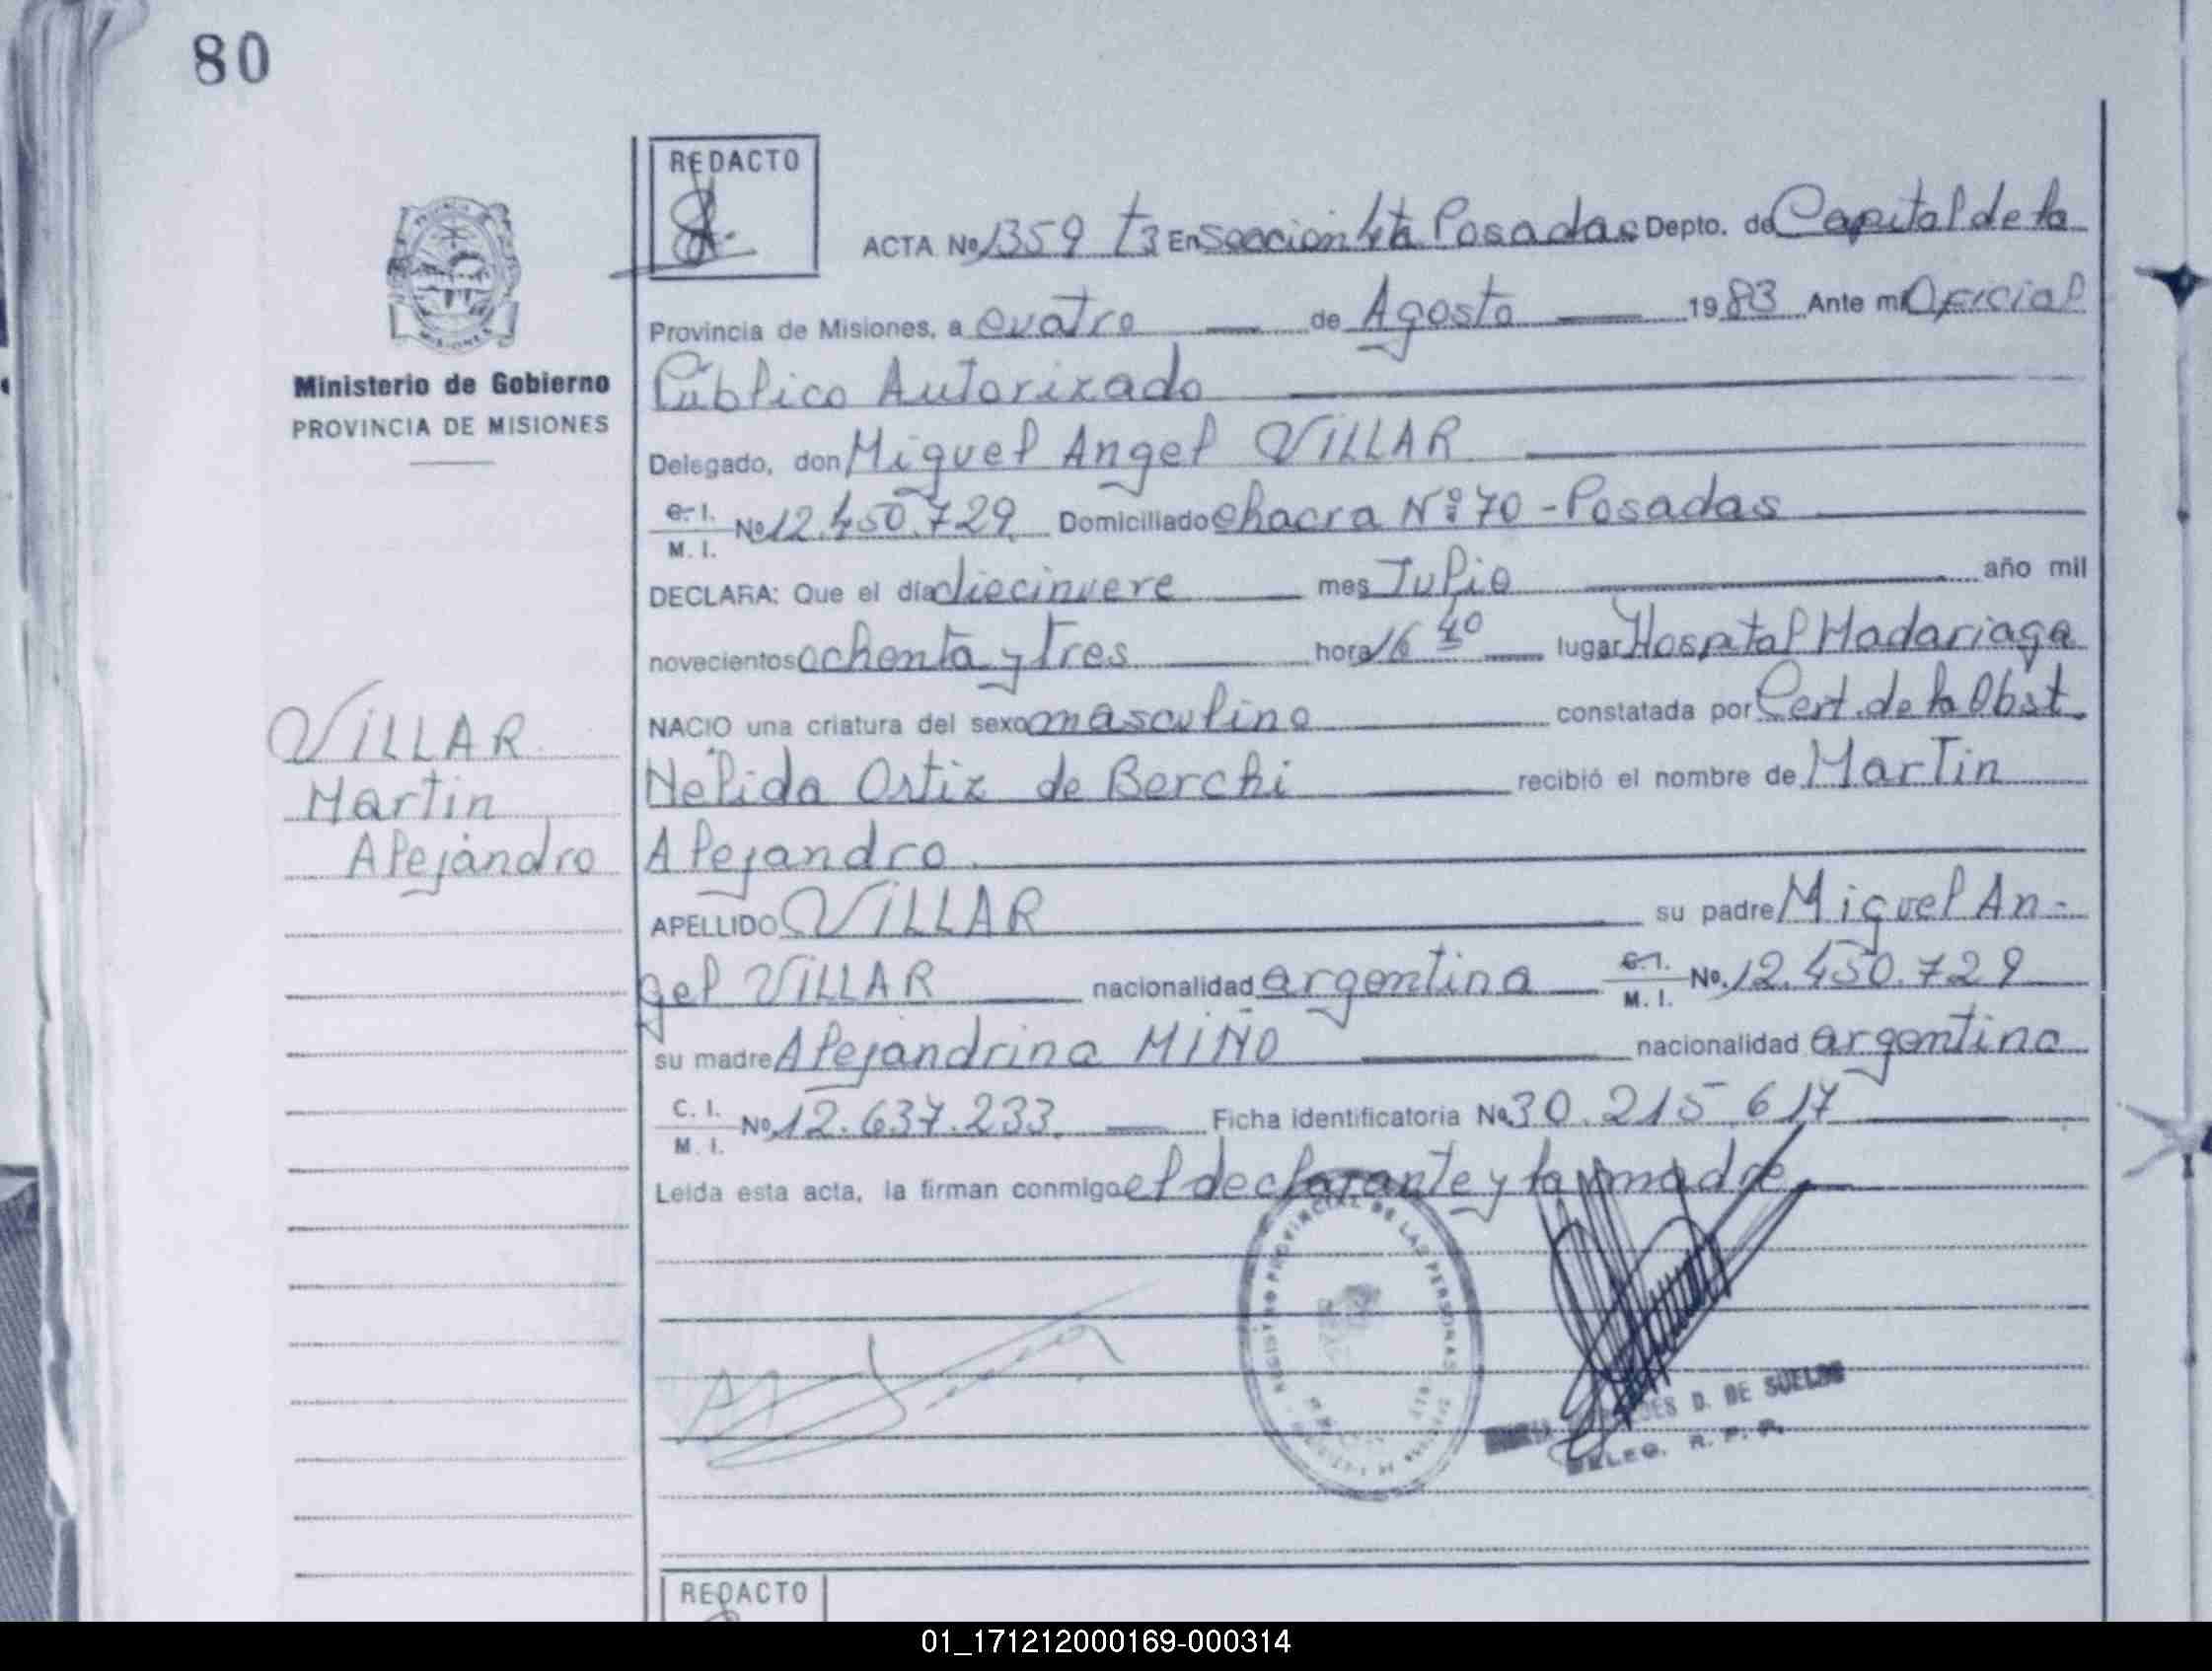 80
REDACTO
ACTA No 1359 t3 En sección 4ta Posadas Depto. de Capital de la
Provincia de Misiones, a cuatro de Agosto 1983 Ante mi Oficial
Público Autorizado
Ministerio de Gobierno
PROVINCIA DE MISIONES
Delegado, don Miguel Angel VILLAR
C. I.
M. I. No 12.450.729 Domiciliado chacra Nº 70 - Posadas
DECLARA: Que el día diecinueve mes Julio año mil
novecientos ochenta y tres hora 16 40 lugar Hospital Madariaga
NACIO una criatura del sexo masculino constatada por Cert. de la Obst.
Nélida Ortiz de Berchi recibió el nombre de Martin
Alejandro
VILLAR
Martin
Alejandro
APELLIDO VILLAR su padre Miguel An-
gel VILLAR nacionalidad argentina C. I.
M. I. No. 12.450.729
su madre Alejandrina MIÑO nacionalidad argentina
C. I.
M. I. No 12.637.233 Ficha identificatoria No 30.215.617
Leida esta acta, la firman conmigo el declarante y la madre
REGISTRO PROVINCIAL DE LAS PERSONAS
D. DE SUELDO
DELEG. R. P. P.
REDACTO
01_171212000169-000314